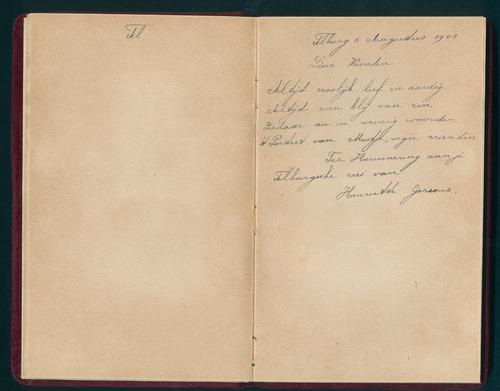 Tl
Tilburg 5 Augustus 1909
Lieve Vrienden
Altijd vroolijk lief en aardig
Altijd even blij van zin
Ziedaar nu in weinig woorden
't Portret van Muntje, mijn vriendin
Ter Herinnering aan je
Tilburgsche reis van
Henriette Gersons.